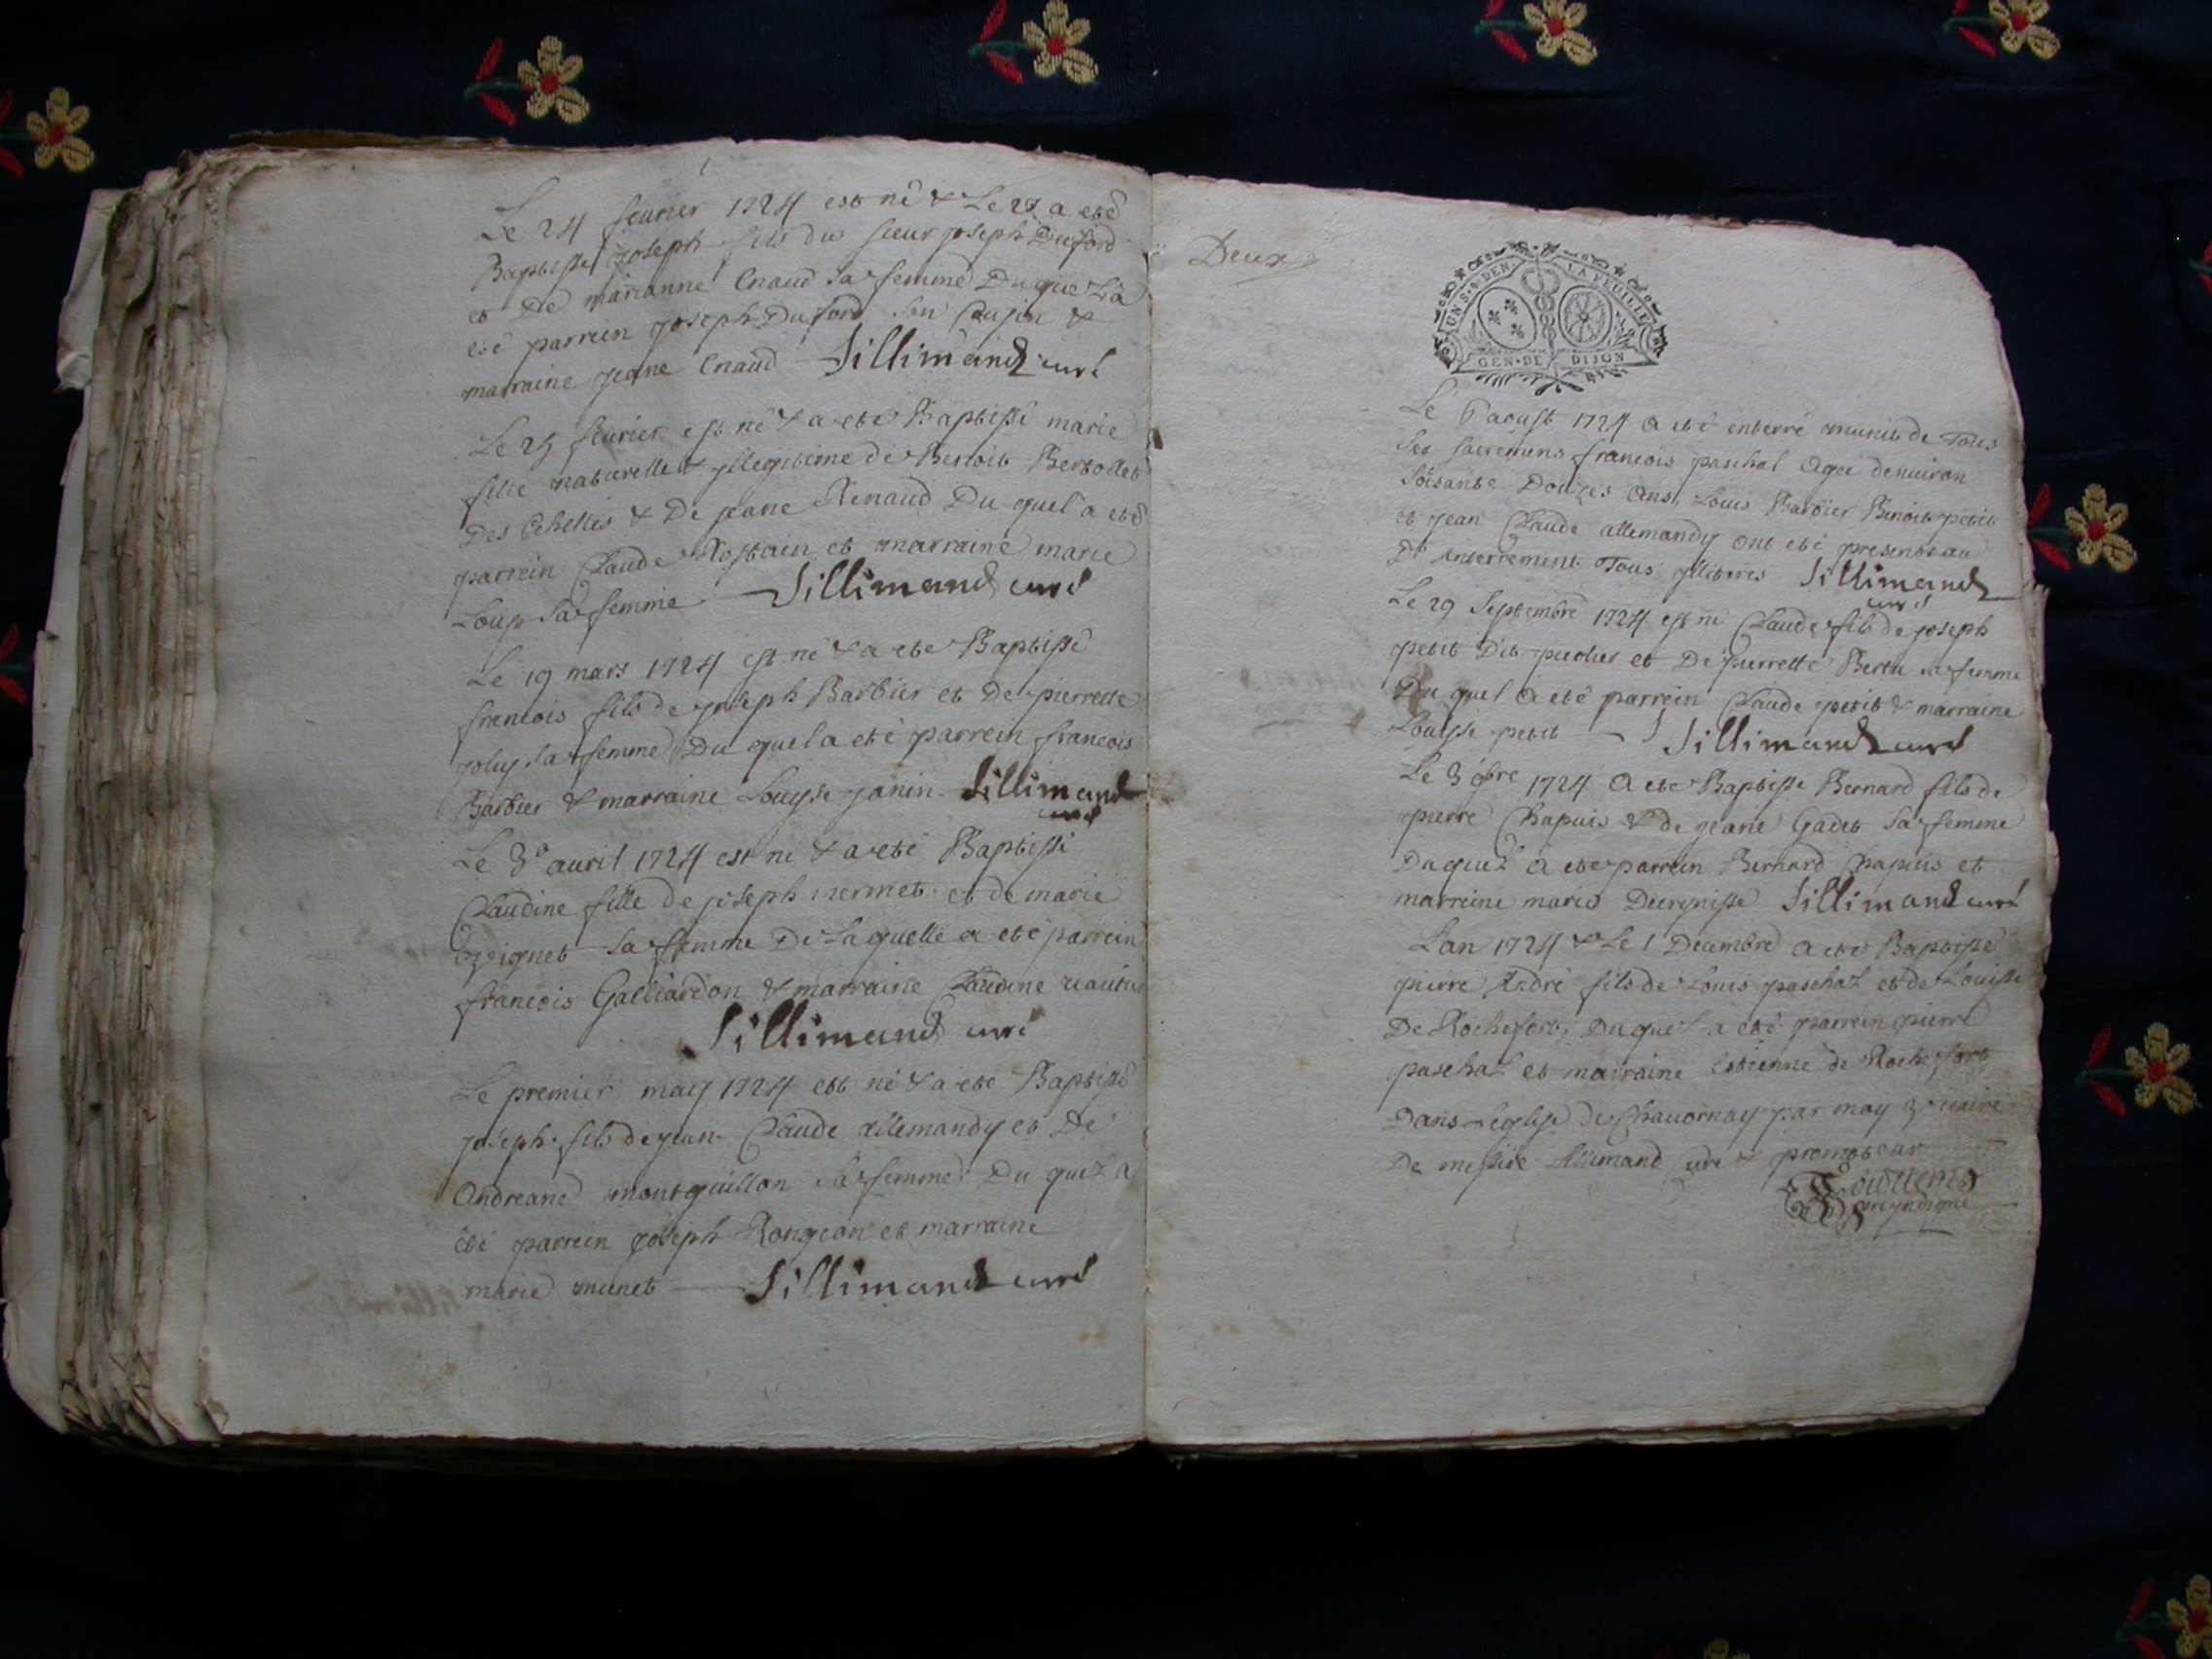 Le 24 feurier 1724 est né & Le 27 a eté
Baptisse joseph fils du sieur joseph Duford
et De marianne Enaud sa femme Duquel a
eté parrein joseph Duford son Cousin &
marraine jeane Enaud Sillimand curé
Le 25 feurier est né & a eté Baptissé marie
filie naturelle & jllegitime de Benoit Bertollet
Des Echelles & De jeane Renaud Du quel a eté
parrein Claude Rostain et marraine marie
Loup sa femme Sillimand curé
Le 19 mars 1724 est né & a eté Baptissé
francois fils de joseph Barbier et De pierrette
joly sa femme Du quel a eté parrein francois
Barbier & marraine Louyse janin Sillimand
curé
Le 3e auril 1724 est né & a eté Baptissé
Claudine fille de joseph mermet et de marie
sa femme De Laquelle a eté parrein
francois Galliardon & marraine Claudine
Sillimand curé
Le premier may 1724 est né & a eté Baptissé
joseph fils de jean Claude allemandy et De
Andreane montguillon sa femme Du quel a
été parrein joseph Rongeon et marraine
marie munet Sillimand curé
Deux
UN S. 4 DEN. LA FEUILLE
GEN. DE DIJON
Le 6 aoust 1724 a eté enterré munit de Tous
ses sacremens francois paschal Agée denuiron
soisante Douzes ans, Louis Barbier Benoit petit
et jean Claude allemandy ont eté presents au
Dt enterrement Tous jlliteres Sillimand
curé
Le 29 Septembre 1724 est né Claude fils de joseph
petit Dit et De pierrette Bertu sa femme
Du quel a eté parrein Claude petit & marraine
Louysse petit Sillimand curé
Le 3 9bre 1724 A eté Baptisse Bernard fils de
pierre Chapuis & de jeane Gadet sa femme
Duquel a eté parrein Bernard Chapuis et
marreine marie Sillimand curé
Lan 1724 & Le 1 Decembre a eté Baptissé
pierre André fils de Louis paschal et de Louisse
De Rochefort, Duquel a eté parrein pierre
paschal et marraine Estienne de Rochefort
Dans Leglise de Chauornay par moy uicaire
De messire sillimand curé & promoteur